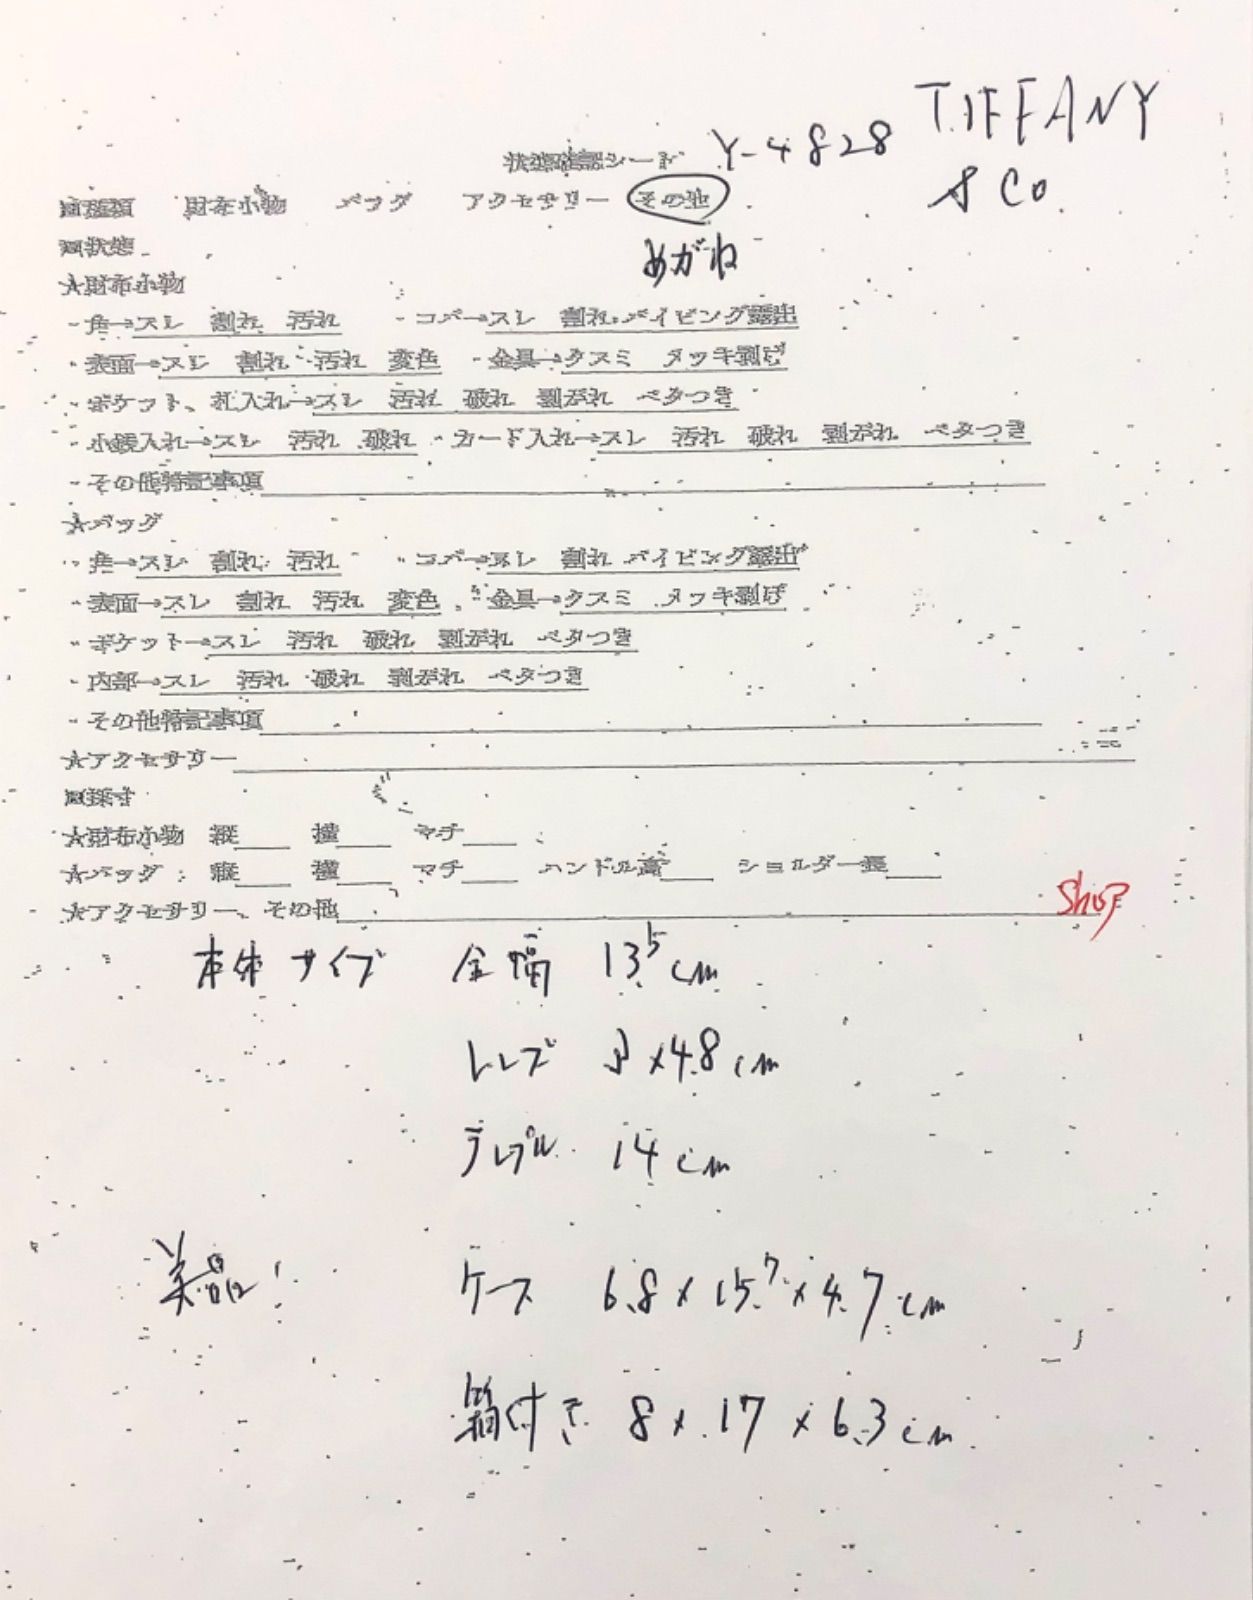 TIFFANY
& Co
状態確認シート Y-4828
■種類 財布小物 バッグ アクセサリー その他
めがね
■状態
★財布小物
・角→スレ 割れ 汚れ ・コバ→スレ 割れ パイピング露出
・表面→スレ 割れ 汚れ 変色 ・金具→クスミ メッキ剥げ
・ポケット、札入れ→スレ 汚れ 破れ 剥がれ ベタつき
・小銭入れ→スレ 汚れ 破れ ・カード入れ→スレ 汚れ 破れ 剥がれ ベタつき
・その他特記事項
★バッグ
・角→スレ 割れ 汚れ ・コバ→スレ 割れ パイピング露出
・表面→スレ 割れ 汚れ 変色 ・金具→クスミ メッキ剥げ
・ポケット→スレ 汚れ 破れ 剥がれ ベタつき
・内部→スレ 汚れ 破れ 剥がれ ベタつき
・その他特記事項
★アクセサリー
■採寸
★財布小物 縦 横 マチ
★バッグ 縦 横 マチ ハンドル高 ショルダー長
★アクセサリー、その他
本体サイズ 全幅 13.5cm
レンズ 3×4.8cm
テンプル 14cm
美品! ケース 6.8×15.7×4.7cm
箱付き 8×17×6.3cm